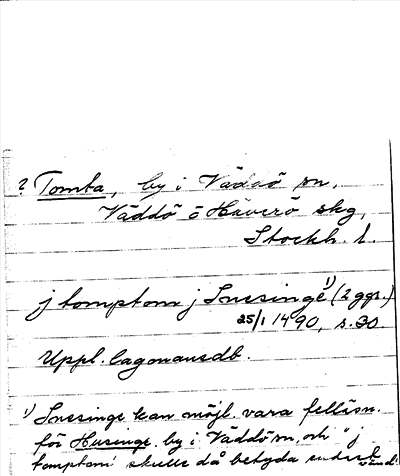 ? Tomta, by i Väddö sn,
Väddö o Häverö skg,
Stockh. l.
j tomptom j Snesinge¹⁾ (2 ggr.)
25/1 1490, s. 30.
Uppl. lagmansdb.
1) Snesinge kan möjl. vara felläsn.
för Husinge, by i Väddö sn, och "j
tomptom" skulle då betyda